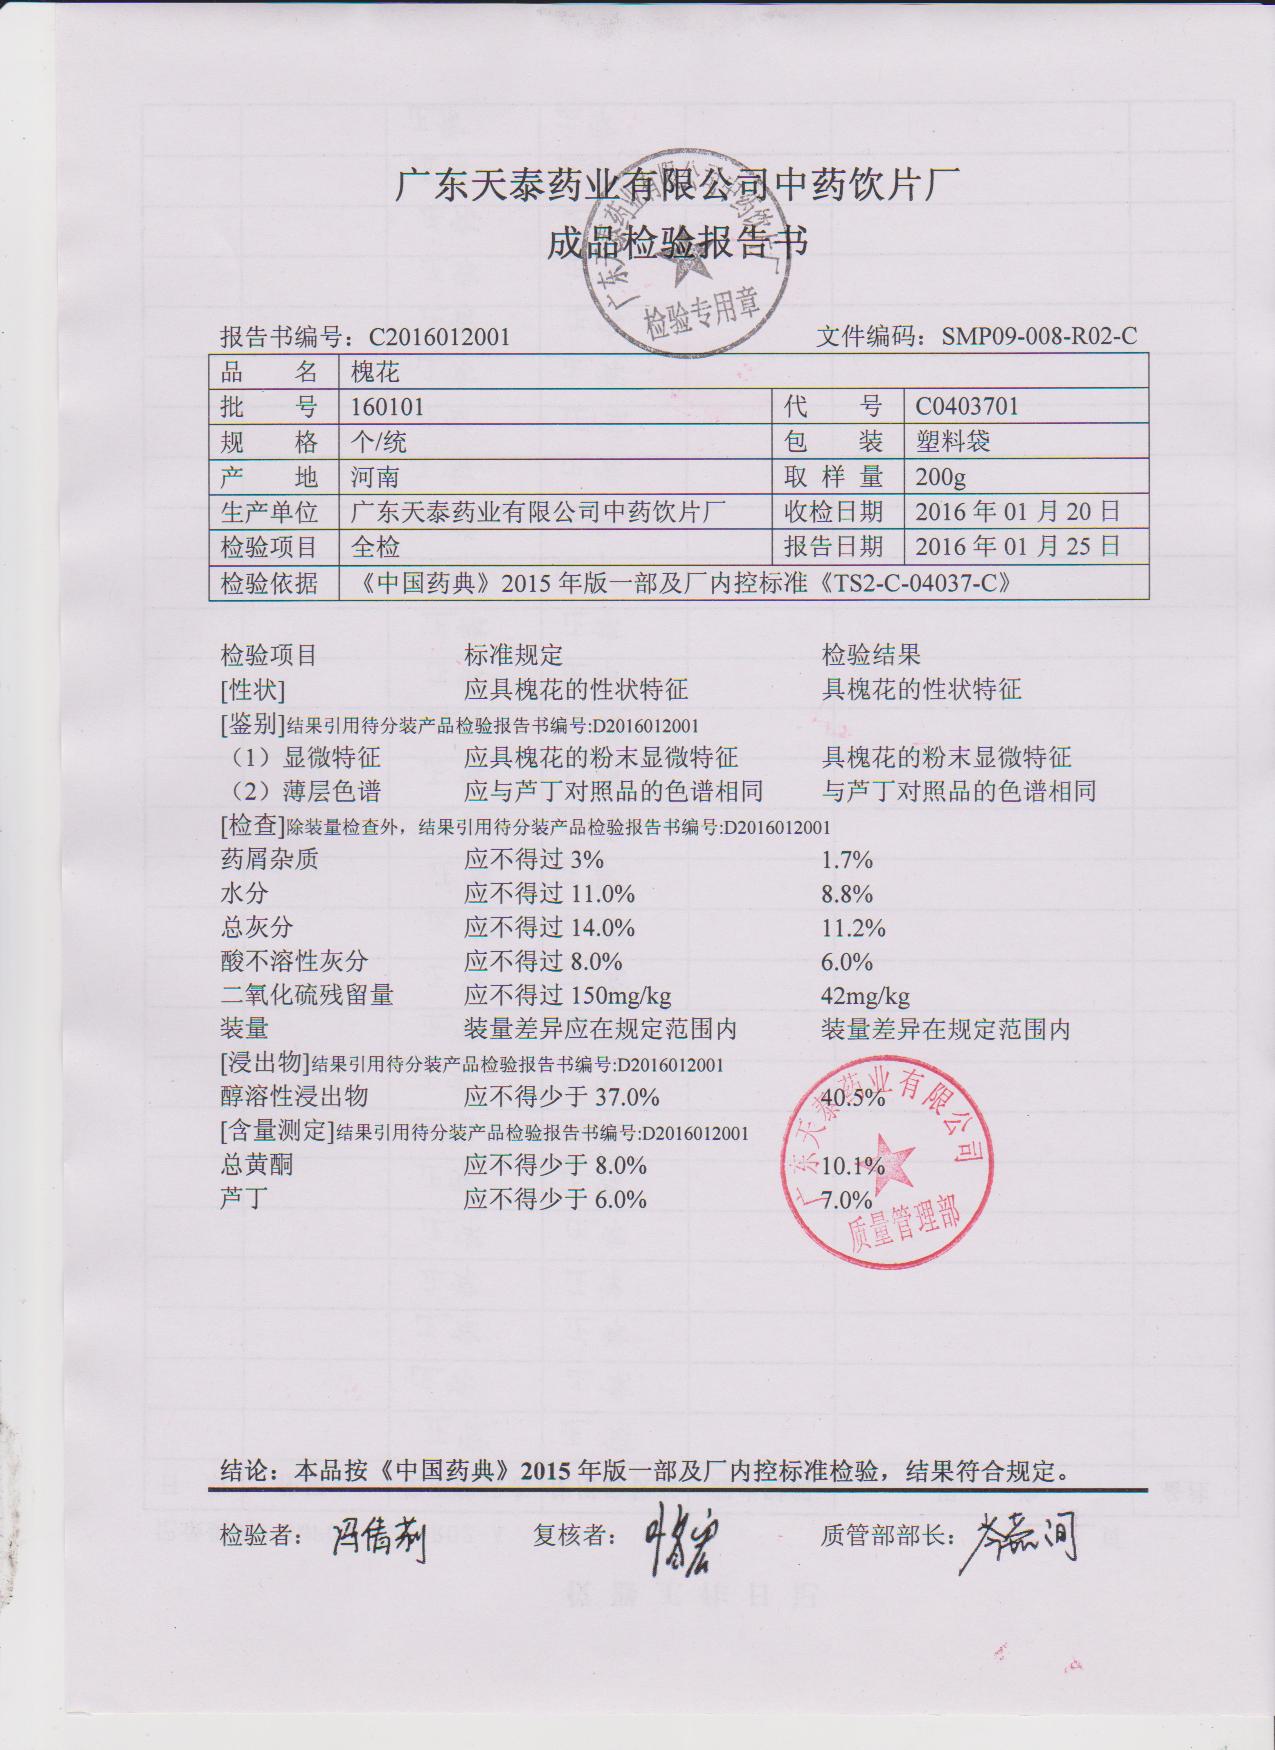 广东天泰药业有限公司中药饮片厂
成品检验报告书
广东天泰药业有限公司中药饮片厂
检验专用章
报告书编号：C2016012001 文件编码：SMP09-008-R02-C
品名 槐花
批号 160101 代号 C0403701
规格 个/统 包装 塑料袋
产地 河南 取样量 200g
生产单位 广东天泰药业有限公司中药饮片厂 收检日期 2016 年 01 月 20 日
检验项目 全检 报告日期 2016 年 01 月 25 日
检验依据 《中国药典》2015 年版一部及厂内控标准《TS2-C-04037-C》
检验项目 标准规定 检验结果
[性状] 应具槐花的性状特征 具槐花的性状特征
[鉴别]结果引用待分装产品检验报告书编号:D2016012001
（1）显微特征 应具槐花的粉末显微特征 具槐花的粉末显微特征
（2）薄层色谱 应与芦丁对照品的色谱相同 与芦丁对照品的色谱相同
[检查]除装量检查外，结果引用待分装产品检验报告书编号:D2016012001
药屑杂质 应不得过 3% 1.7%
水分 应不得过 11.0% 8.8%
总灰分 应不得过 14.0% 11.2%
酸不溶性灰分 应不得过 8.0% 6.0%
二氧化硫残留量 应不得过 150mg/kg 42mg/kg
装量 装量差异应在规定范围内 装量差异在规定范围内
[浸出物]结果引用待分装产品检验报告书编号:D2016012001
醇溶性浸出物 应不得少于 37.0% 40.5%
[含量测定]结果引用待分装产品检验报告书编号:D2016012001
总黄酮 应不得少于 8.0% 10.1%
芦丁 应不得少于 6.0% 7.0%
广东天泰药业有限公司
质量管理部
结论：本品按《中国药典》2015 年版一部及厂内控标准检验，结果符合规定。
检验者： 冯倩莉 复核者： 质管部部长：